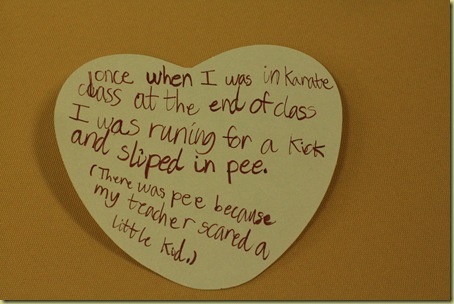 once when I was in Karate
class at the end of class
I was runing for a kick
and sliped in pee.
(There was pee because
my teacher scared a
little kid.)